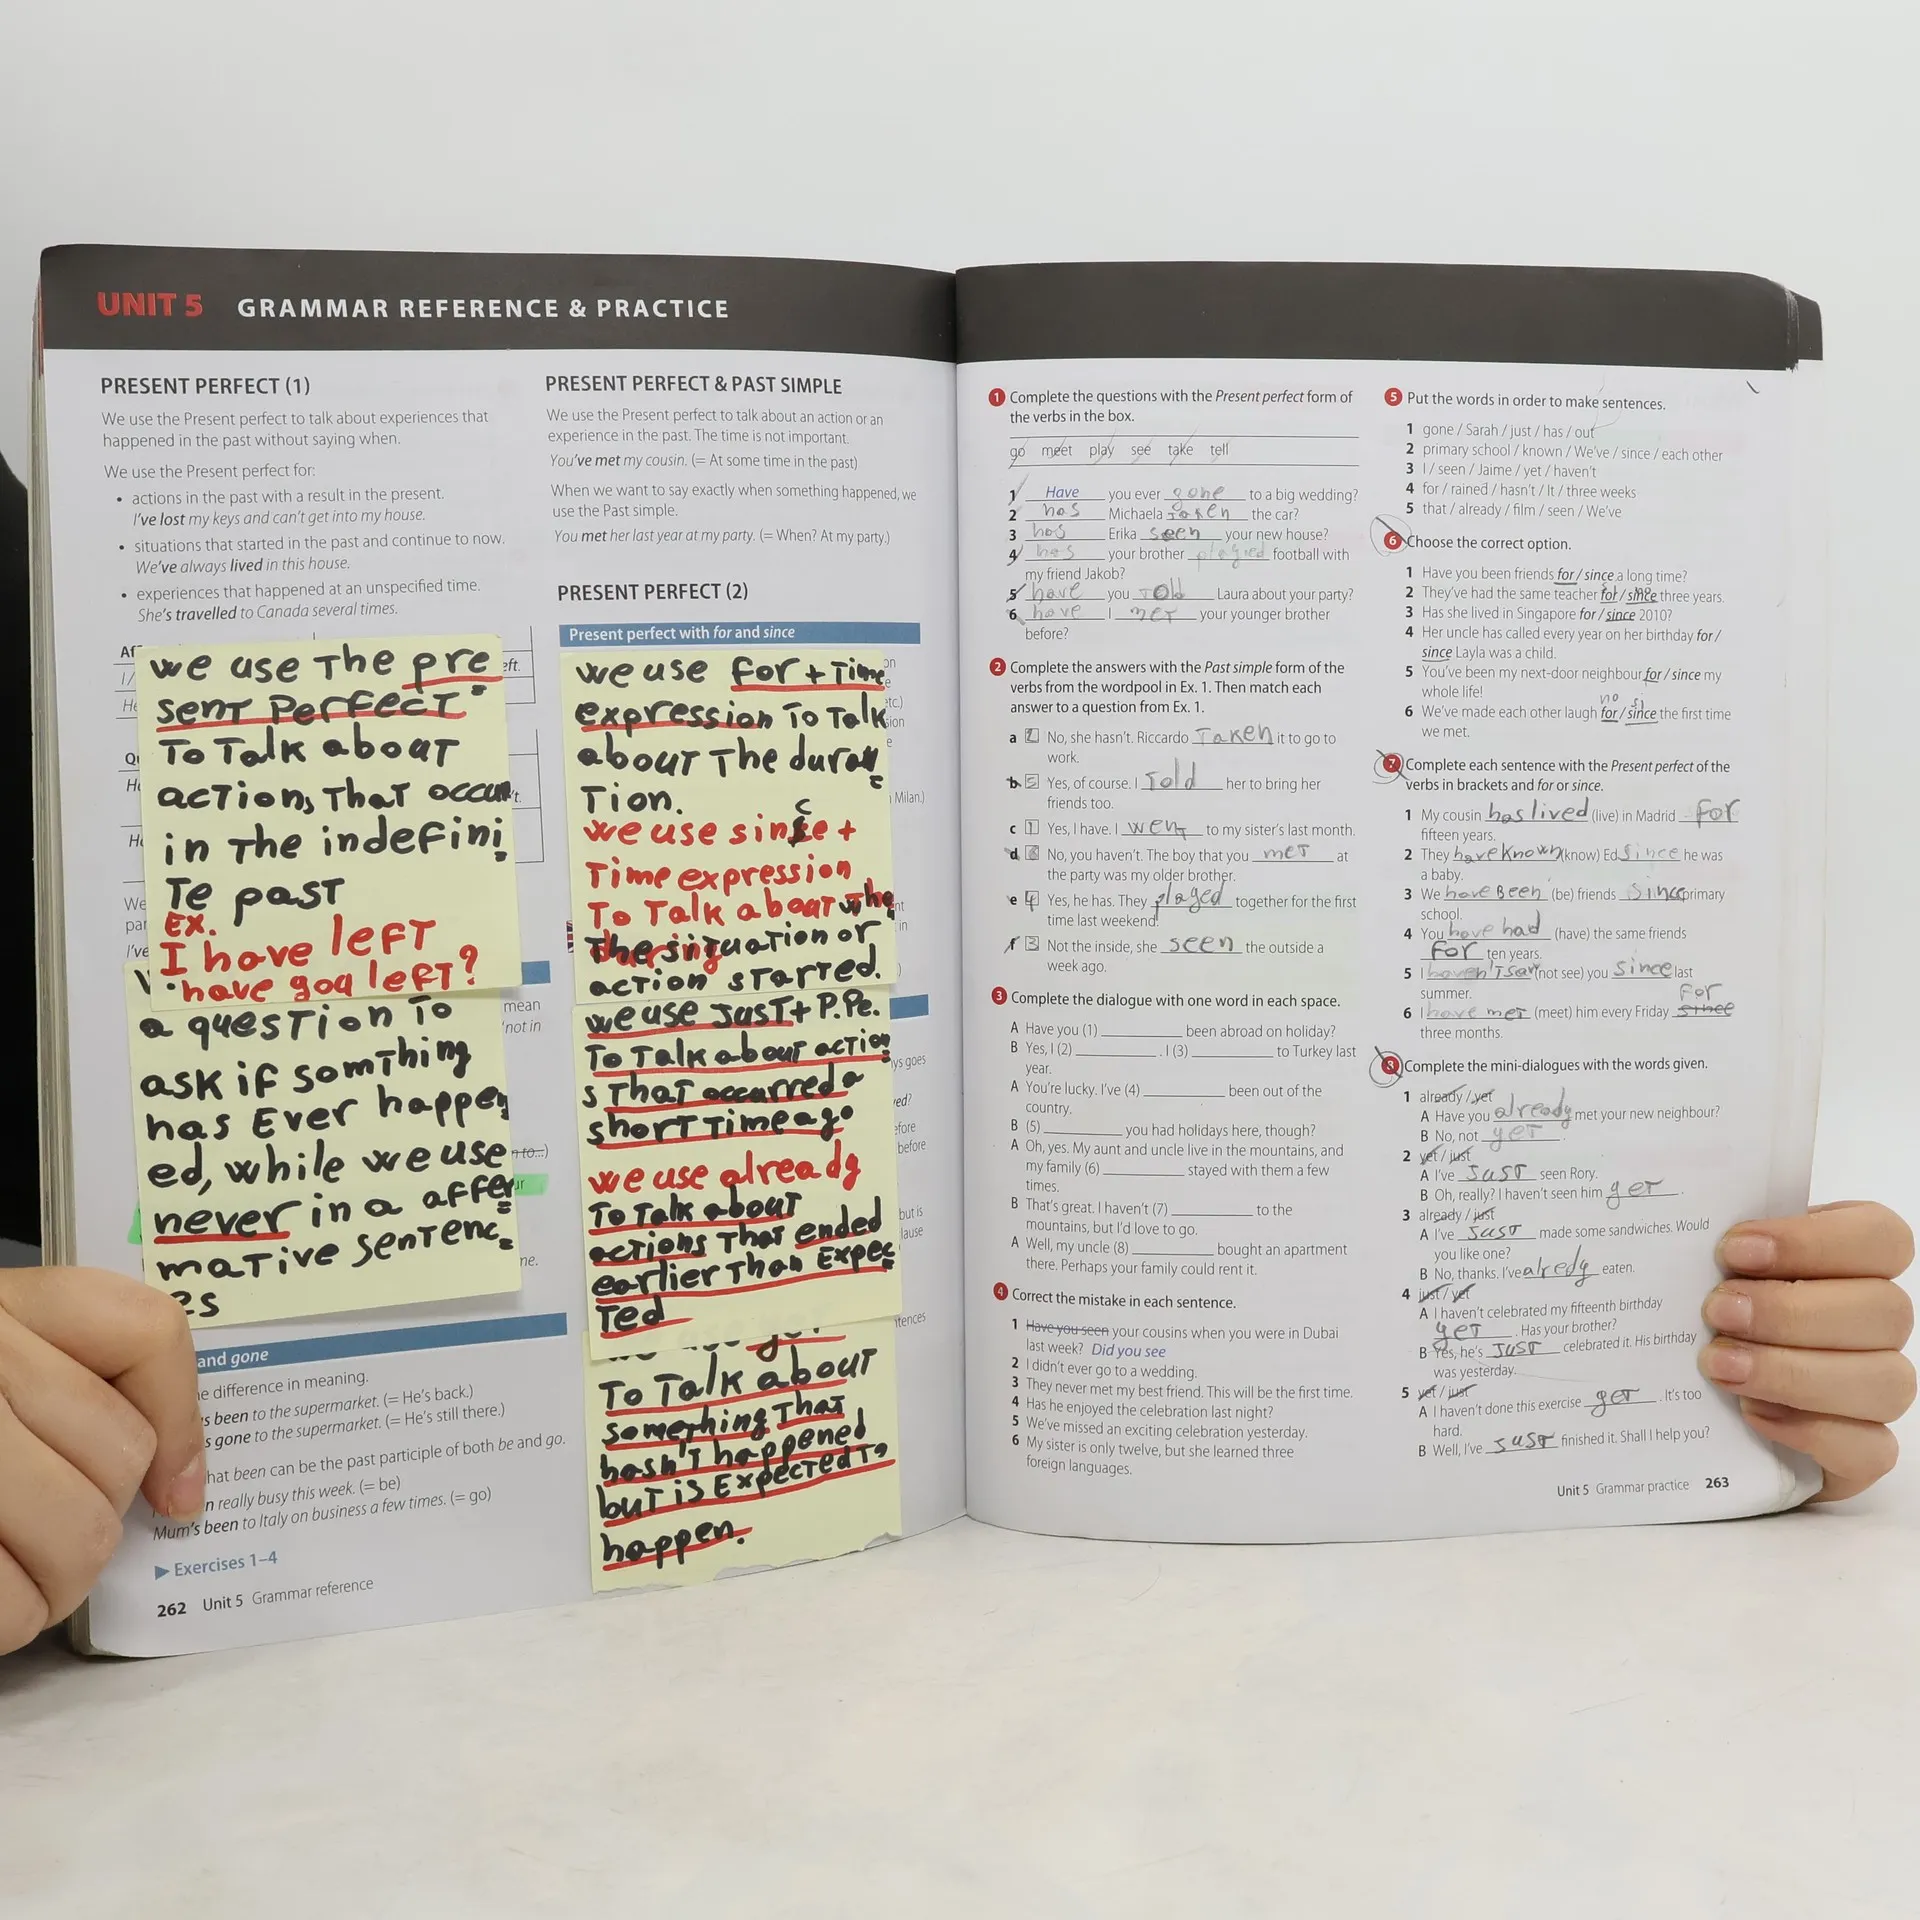 UNIT 5 GRAMMAR REFERENCE & PRACTICE
PRESENT PERFECT (1)
We use the Present perfect to talk about experiences that
happened in the past without saying when.
We use the Present perfect for:
• actions in the past with a result in the present.
I've lost my keys and can't get into my house.
• situations that started in the past and continue to now.
We've always lived in this house.
• experiences that happened at an unspecified time.
She's travelled to Canada several times.
we use The pre
senT PerfecT
To Talk about
acTion, ThaT occur
in The indefini
Te past
EX.
I have lefT
have you lefT?
a quesTion To
ask if somThing
has Ever happen
ed, while we use
never in a affer
maTive senTenc
es
and gone
difference in meaning.
been to the supermarket. (= He's back.)
gone to the supermarket. (= He's still there.)
hat been can be the past participle of both be and go.
really busy this week. (= be)
Mum's been to Italy on business a few times. (= go)
▶ Exercises 1–4
262 Unit 5 Grammar reference
PRESENT PERFECT & PAST SIMPLE
We use the Present perfect to talk about an action or an
experience in the past. The time is not important.
You've met my cousin. (= At some time in the past)
When we want to say exactly when something happened, we
use the Past simple.
You met her last year at my party. (= When? At my party.)
PRESENT PERFECT (2)
Present perfect with for and since
we use for + Time
expression To Talk
abouT The dura
Tion.
we use since +
Time expression
To Talk abouT
The siTuaTion or
acTion sTarTed.
we use JusT + P.Pe.
To Talk abouT acTion
s ThaT occurred a
shorT Time ago
we use already
To Talk abouT
acTions ThaT ended
earlier Than Expec
Ted
To Talk abouT
someThing ThaT
hasn'T happened
buT is ExpecTed T
happen.
1 Complete the questions with the Present perfect form of
the verbs in the box.
go meet play see take tell
1 Have you ever gone to a big wedding?
2 has Michaela Taken the car?
3 has Erika seen your new house?
4 has your brother played football with
my friend Jakob?
5 have you Told Laura about your party?
6 have I meT your younger brother
before?
2 Complete the answers with the Past simple form of the
verbs from the wordpool in Ex. 1. Then match each
answer to a question from Ex. 1.
a 2 No, she hasn't. Riccardo Taken it to go to
work.
b 5 Yes, of course. I Told her to bring her
friends too.
c 1 Yes, I have. I wenT to my sister's last month.
d 6 No, you haven't. The boy that you meT at
the party was my older brother.
e 4 Yes, he has. They played together for the first
time last weekend.
f 3 Not the inside, she seen the outside a
week ago.
3 Complete the dialogue with one word in each space.
A Have you (1) been abroad on holiday?
B Yes, I (2) . I (3) to Turkey last
year.
A You're lucky. I've (4) been out of the
country.
B (5) you had holidays here, though?
A Oh, yes. My aunt and uncle live in the mountains, and
my family (6) stayed with them a few
times.
B That's great. I haven't (7) to the
mountains, but I'd love to go.
A Well, my uncle (8) bought an apartment
there. Perhaps your family could rent it.
4 Correct the mistake in each sentence.
1 Have you seen your cousins when you were in Dubai
last week? Did you see
2 I didn't ever go to a wedding.
3 They never met my best friend. This will be the first time.
4 Has he enjoyed the celebration last night?
5 We've missed an exciting celebration yesterday.
6 My sister is only twelve, but she learned three
foreign languages.
5 Put the words in order to make sentences.
1 gone / Sarah / just / has / out
2 primary school / known / We've / since / each other
3 I / seen / Jaime / yet / haven't
4 for / rained / hasn't / It / three weeks
5 that / already / film / seen / We've
6 Choose the correct option.
1 Have you been friends for / since a long time?
2 They've had the same teacher for / since three years.
3 Has she lived in Singapore for / since 2010?
4 Her uncle has called every year on her birthday for /
since Layla was a child.
5 You've been my next-door neighbour for / since my
whole life!
no si
6 We've made each other laugh for / since the first time
we met.
7 Complete each sentence with the Present perfect of the
verbs in brackets and for or since.
1 My cousin has lived (live) in Madrid for
fifteen years.
2 They have known (know) Ed since he was
a baby.
3 We have Been (be) friends since primary
school.
4 You have had (have) the same friends
for ten years.
5 I haven'T saw (not see) you since last
summer.
for
6 I have meT (meet) him every Friday since
three months.
8 Complete the mini-dialogues with the words given.
1 already / yet
A Have you already met your new neighbour?
B No, not yeT .
2 yet / just
A I've JusT seen Rory.
B Oh, really? I haven't seen him yeT .
3 already / just
A I've JusT made some sandwiches. Would
you like one?
B No, thanks. I've alredy eaten.
4 just / yet
A I haven't celebrated my fifteenth birthday
yeT . Has your brother?
B Yes, he's JusT celebrated it. His birthday
was yesterday.
5 yet / just
A I haven't done this exercise yeT . It's too
hard.
B Well, I've JusT finished it. Shall I help you?
Unit 5 Grammar practice 263